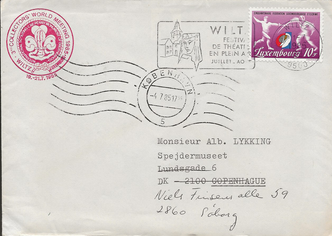 COLLECTORS' WORLD MEETING
WILTZ
WILTZ
FESTIVAL
DE THEATRE
EN PLEIN AIR
JUILLET
Luxembourg 10F
KØBENHAVN
-4.7.85.17
S
Monsieur Alb. LYKKING
Spejdermuseet
Lundsgade 6
DK 2100 COPENHAGUE
Niels Finsens alle 59
2860 Söborg